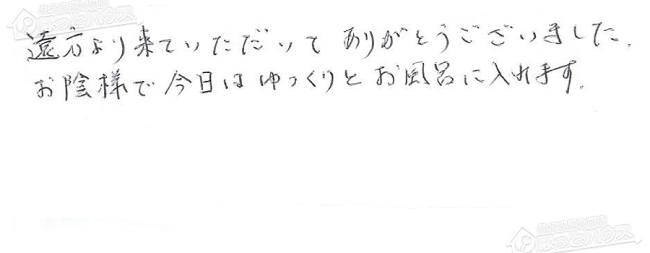 遠方より来ていただいて ありがとうございました.
お陰様で今日はゆっくりとお風呂に入れます.